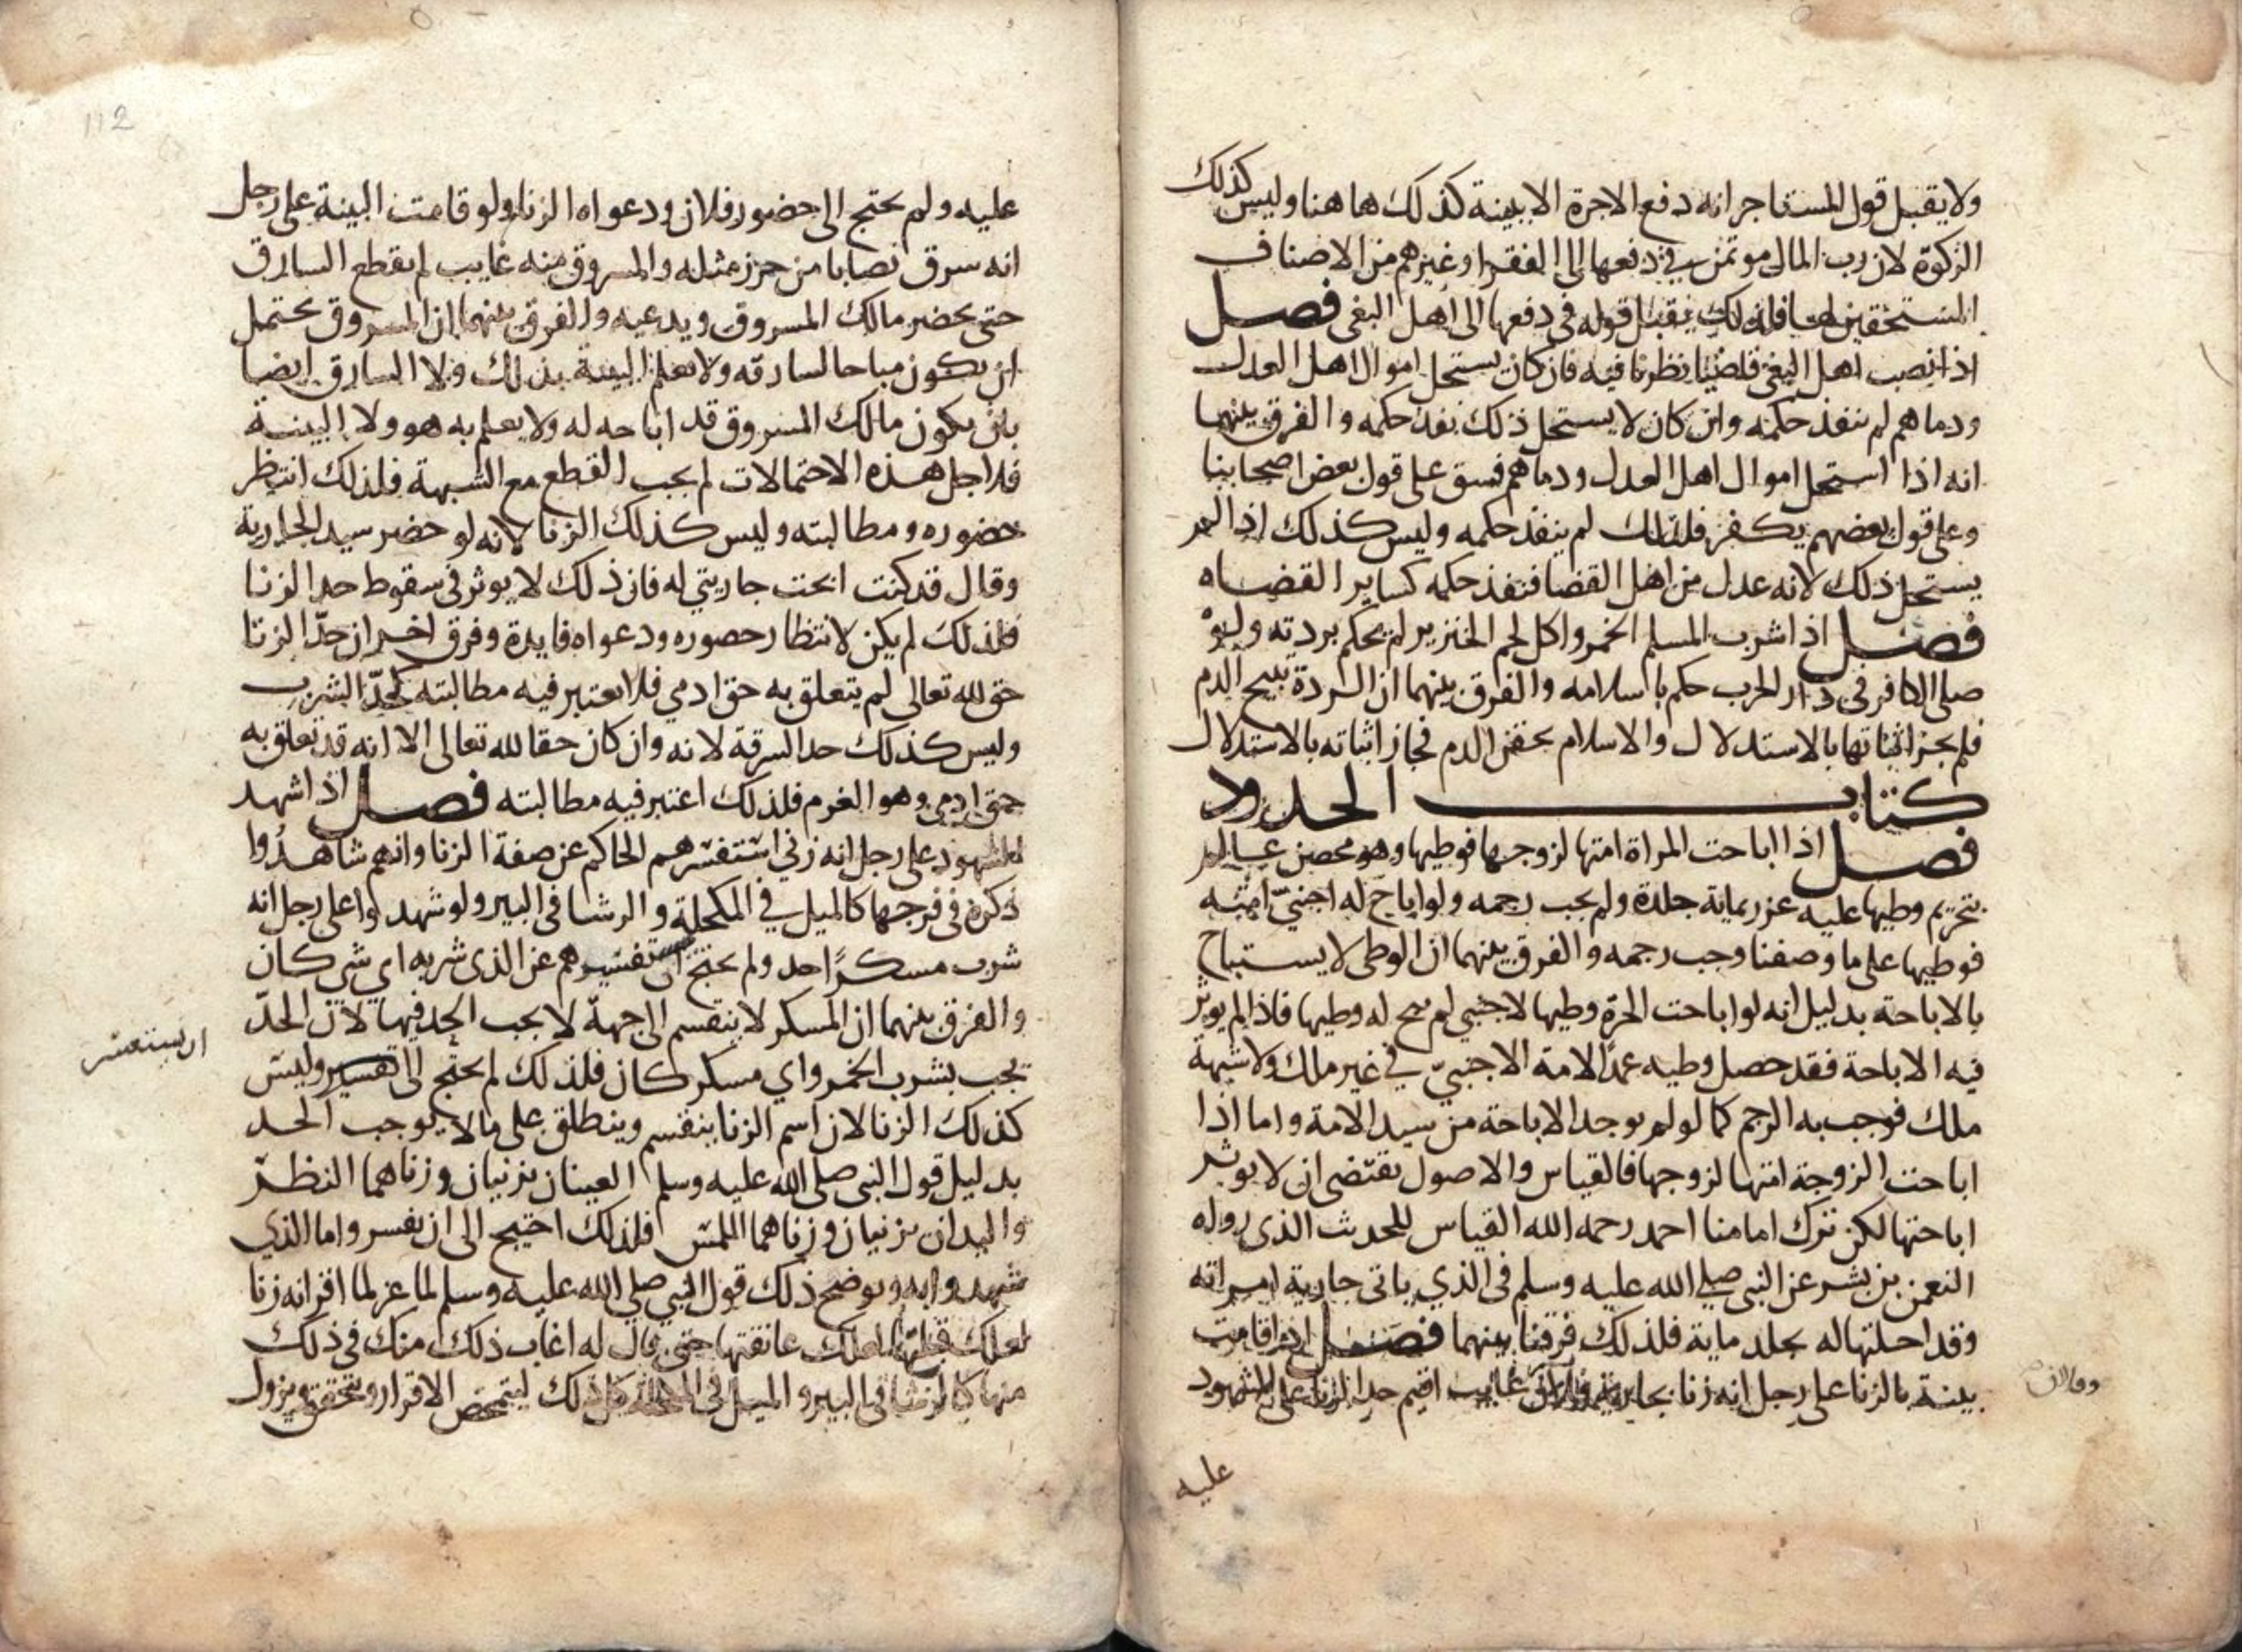 ولا يقبل قول المستاجر انه دفع الاجرة الا ببينة كذلك هاهنا وليس كذلك
الزكوة لان رب المال موتمن في دفعها الى الفقرا وغيرهم من الاصناف
المستحقين لها فلذلك يقبل قوله في دفعها الى اهل البغي فصل
اذا نصب اهل البغي قاضيا نظرنا فيه فان كان يستحل اموال اهل العدل
ودماهم لم ننفذ حكمه وان كان لا يستحل ذلك نفذ حكمه والفرق بينهما
انه اذا استحل اموال اهل العدل ودماهم فسق على قول بعض اصحابنا
وعلى قول بعضهم يكفر فلذلك لم ينفذ حكمه وليس كذلك اذا لم
يستحل ذلك لانه عدل من اهل القضا فنفذ حكمه كساير القضاه
فصل اذا شرب المسلم الخمر واكل لحم الخنزير لم يحكم بردته ولو
صلى الكافر في دار الحرب حكم باسلامه والفرق بينهما ان الردة تبيح الدم
فلم يجز اثباتها بالاستدلال والاسلام يحقن الدم فجاز اثباته بالاستدلال
كتاب الحدود
فصل اذا اباحت المراة امتها لزوجها فوطيها وهو محصن عالم
بتحريم وطيها عليه عزر بماية جلدة ولم يجب رجمه ولو اباح له اجنبي امته
فوطيها على ما وصفنا وجب رجمه والفرق بينهما ان الوطى لا يستباح
بالاباحة بدليل انه لو اباحت الحرة وطيها لاجنبي لم يبح له وطيها فاذا لم يوثر
فيه الاباحة فقد حصل وطيه عمدا لامة الاجنبي في غير ملك ولا شبهة
ملك فوجب به الرجم كما لو لم يوجد الاباحة من سيد الامة واما اذا
اباحت الزوجة امتها لزوجها فالقياس والاصول يقتضى ان لا يوثر
اباحتها لكن ترك امامنا احمد رحمه الله القياس للحديث الذي رواه
النعمن بن بشر عن النبي صلى الله عليه وسلم في الذي ياتي جارية امراته
وقد احلتها له يجلد ماية فلذلك فرقنا بينهما فصل اذا قامت
بينة بالزنا على رجل انه زنا بجارية فلان غايب اقيم حد الزنا على المشهود
عليه
عليه ولم يحتج الى حضور فلان ودعواه الزنا ولو قامت البينة على رجل
انه سرق نصابا من حرز مثله والمسروق منه غايب لم يقطع السارق
حتى يحضر مالك المسروق ويدعيه والفرق بينهما ان المسروق يحتمل
ان يكون مباحا لسارقه ولا تعلم البينة بذلك ولا السارق ايضا
بان يكون مالك المسروق قد اباحه له ولا يعلم به هو ولا البينة
فلاجل هذه الاحتمالات لم يجب القطع مع الشبهة فلذلك انتظر
حضوره ومطالبته وليس كذلك الزنا لانه لو حضر سيد الجارية
وقال قد كنت ابحت جاريتي له فان ذلك لا يوثر في سقوط حد الزنا
فلذلك لم يكن لانتظار حضوره ودعواه فايدة وفرق اخر ان حد الزنا
حق لله تعالى لم يتعلق به حق ادمي فلا يعتبر فيه مطالبته كحد الشرب
وليس كذلك حد السرقة لانه وان كان حقا لله تعالى الا انه قد تعلق به
حق ادمي وهو الغرم فلذلك اعتبر فيه مطالبته فصل اذا شهد
الشهود على رجل انه زنى استفسرهم الحاكم عن صفة الزنا وانهم شاهدوا
ذكره في فرجها كالميل في المكحلة والرشا في البير ولو شهدوا على رجل انه
شرب مسكرا حد ولم يحتج ان يستفسرهم عن الذى شربه اي شي كان
والفرق بينهما ان المسكر لا ينقسم الى جهة لا يجب الحد فيها لان الحد
يجب بشرب الخمر واي مسكر كان فلذلك لم يحتج الى تفسير وليس
ان يستفسر
كذلك الزنا لان اسم الزنا ينقسم وينطلق على ما لا يوجب الحد
بدليل قول النبي صلى الله عليه وسلم العينان يزنيان وزناهما النظر
واليدان يزنيان وزناهما اللمس فلذلك احتيج الى ان يفسر واما الذي
شهدوا به ويوضح ذلك قول النبي صلى الله عليه وسلم لماعز لما اقر انه زنا
لعلك قبلتها لعلك عانقتها حتى قال له اغاب ذلك منك في ذلك
منها كالرشا في البير والميل في المكحلة كل ذلك ليتمحض الاقرار ويتحقق ويزول